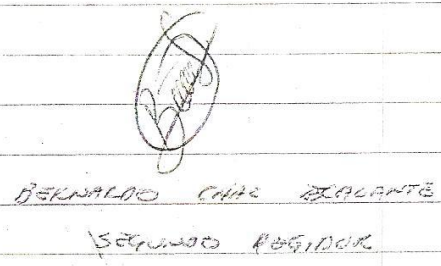 BERNARDO CHAC ESCALANTE
SEGUNDO REGIDOR